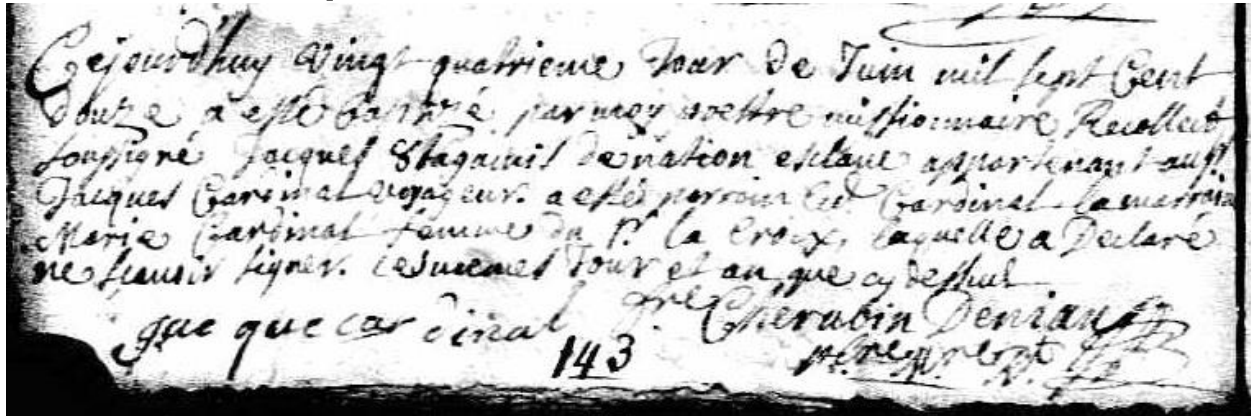 Cejourd'huy vingt quatrieme Jour de Juin mil sept Cent
douze a esté baptizé par moy prestre missionnaire Recollect
soussigné Jacques 8tagamis de nation esclave appartenant au Sr
Jacques Cardinal voyageur. a esté parrain led. Cardinal la marraine
Marie Cardinal femme du Sr la Croix, laquelle a Declaré
ne scavoir signer. les memes Jour et an que cy dessus
gue que car dinal fre Cherubin Deniau
143